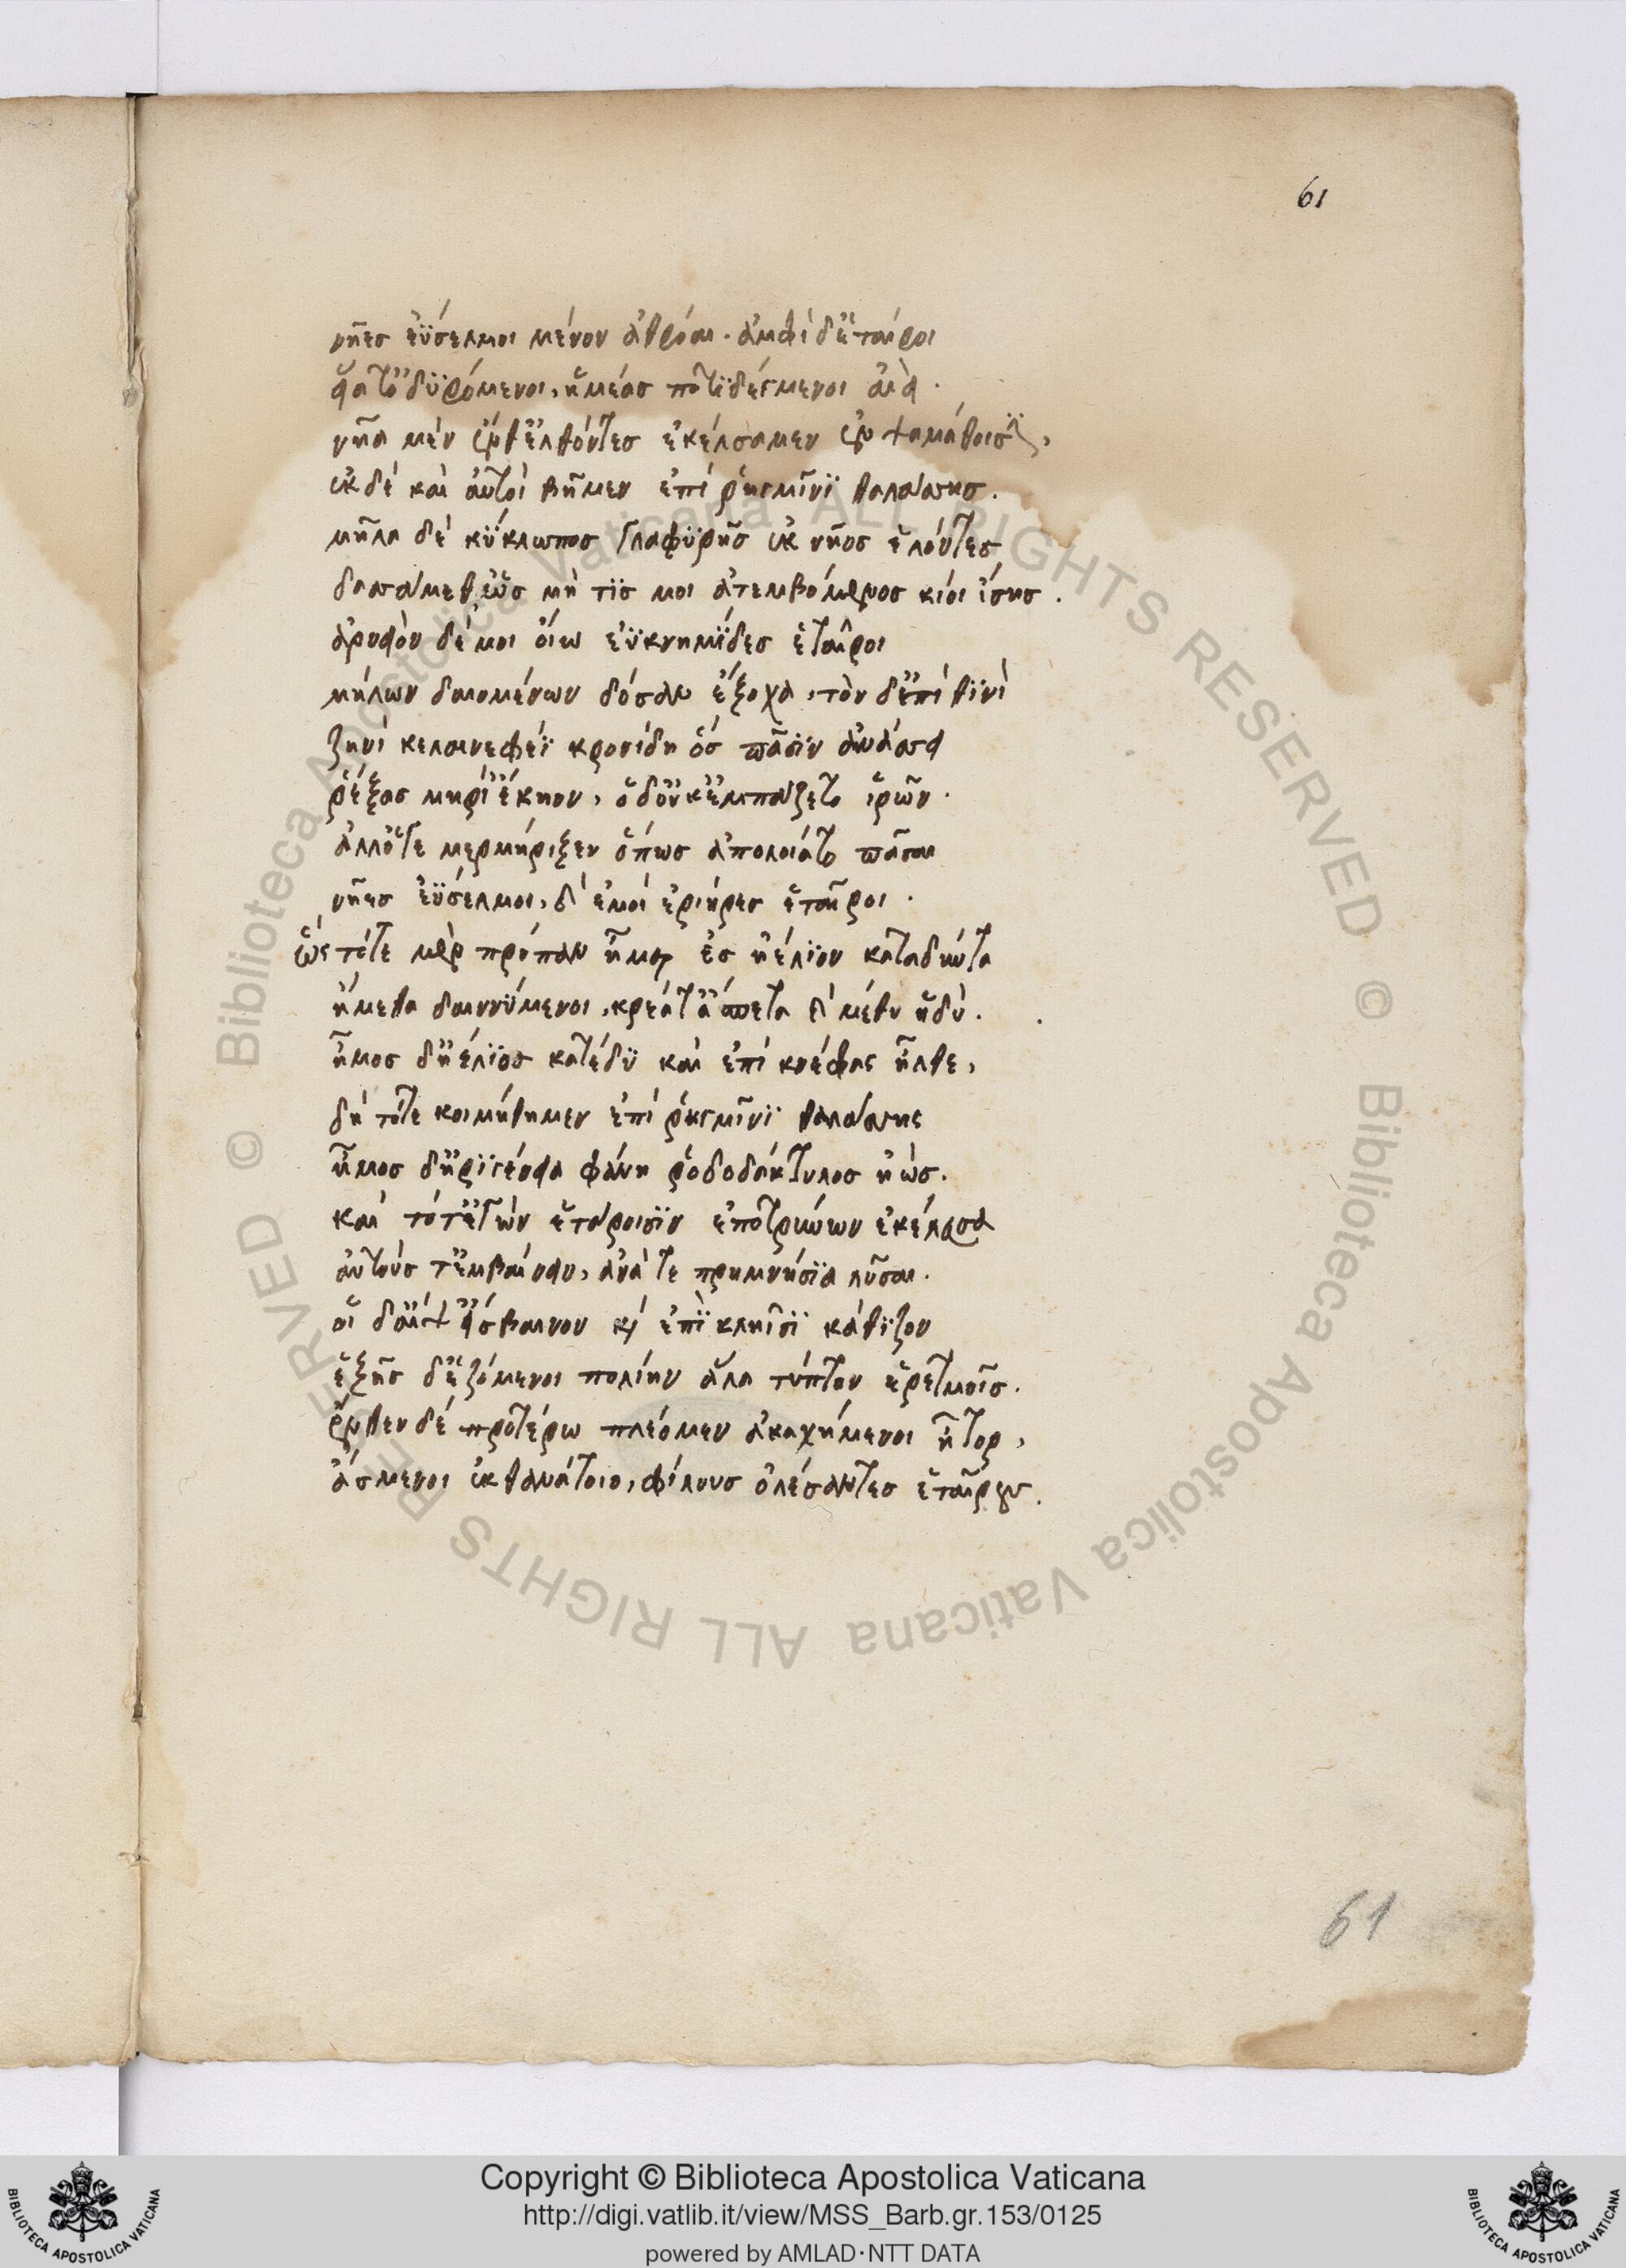 61
νῆες ἐΰσελμοι μένον ἀθρόαι. ἀμφὶ δ' ἑταῖροι
εἵατ' ὀδυρόμενοι, ἡμέας ποτιδέγμενοι αἰεί.
νῆα μὲν ἔνθ' ἐλθόντες ἐκέλσαμεν ἐν ψαμάθοισιν,
ἐκ δὲ καὶ αὐτοὶ βῆμεν ἐπὶ ῥηγμῖνϊ θαλάσσης.
μῆλα δὲ κύκλωπος γλαφυρῆς ἐκ νηὸς ἑλόντες
δασσάμεθ' ὡς μή τίς μοι ἀτεμβόμενος κίοι ἴσης.
ἀρνειὸν δέ μοι οἴω ἐϋκνημῖδες ἑταῖροι
μήλων δαιομένων δόσαν ἔξοχα, τὸν δ' ἐπὶ θινὶ
ζηνὶ κελαινεφέϊ κρονίδη ὃς πᾶσϊν ἀνάσσει
ῥέξας μηρί' ἔκηον, ὁ δ' οὐκ ἐμπάζετο ἱρῶν.
ἀλλ' ὅγε μερμήριξεν ὅπως ἀπολοιάτο πᾶσαι
νῆες ἐΰσελμοι, καὶ ἐμοὶ ἐρίηρες ἑταῖροι.
ὣς τότε μὲν πρόπαν ἦμαρ ἐς ἠέλϊον καταδῦντα
ἥμεθα δαινύμενοι, κρέατ' ἄσπετα καὶ μέθυ ἡδύ.
ἦμος δ' ἠέλϊος κατέδυ καὶ ἐπὶ κνέφας ἦλθε,
δὴ τότε κοιμήθημεν ἐπὶ ῥηγμῖνϊ θαλάσσης
ἦμος δ' ἠριγένεια φάνη ῥοδοδάκτυλος ἠώς.
καὶ τότ' ἐγὼν ἑτάροισϊν ἐποτρύνων ἐκέλευσα
αὐτούς τ' ἐμβαίνειν, ἀνά τε πρυμνήσϊα λῦσαι.
οἱ δ' αἶψ' εἴσβαινον καὶ ἐπὶ κληῖσϊ κάθϊζον
ἑξῆς δ' ἑζόμενοι πολιὴν ἅλα τύπτον ἐρετμοῖς.
ἔνθεν δὲ προτέρω πλέομεν ἀκαχήμενοι ἦτορ,
ἄσμενοι ἐκ θανάτοιο, φίλους ὀλέσαντες ἑταίρους.
61
© Biblioteca Apostolica Vaticana ALL RIGHTS RESERVED © Biblioteca Apostolica Vaticana ALL RIGHTS RESERVED
Copyright © Biblioteca Apostolica Vaticana
http://digi.vatlib.it/view/MSS_Barb.gr.153/0125
powered by AMLAD·NTT DATA
BIBLIOTECA APOSTOLICA VATICANA
BIBLIOTECA APOSTOLICA VATICANA